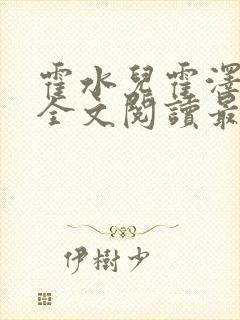 霍水兒霍澤
全文閱讀最
伊樹少